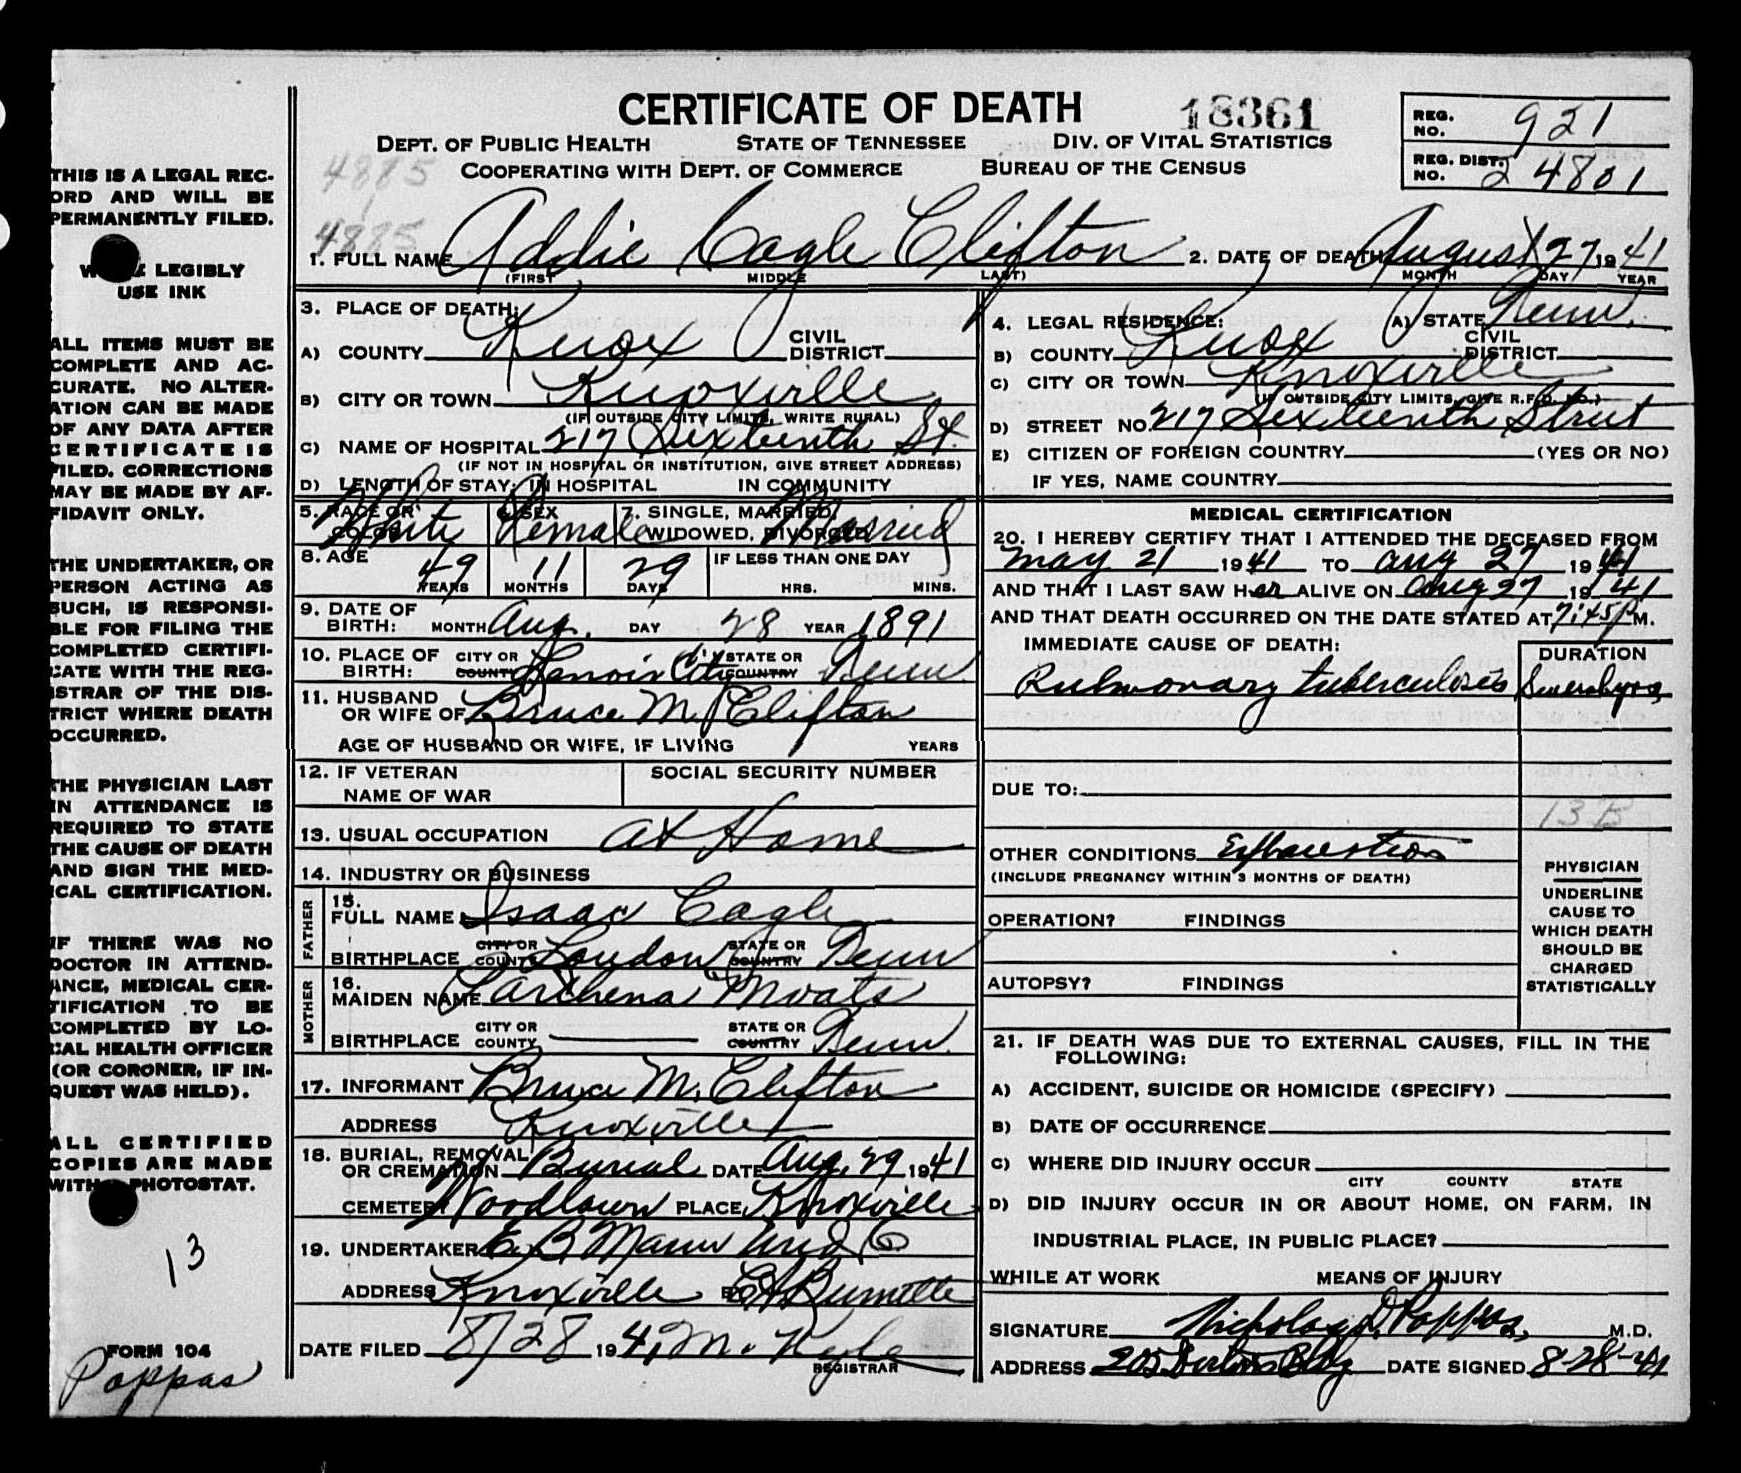 CERTIFICATE OF DEATH 18361
DEPT. OF PUBLIC HEALTH STATE OF TENNESSEE DIV. OF VITAL STATISTICS
COOPERATING WITH DEPT. OF COMMERCE BUREAU OF THE CENSUS
REG. NO. 921
REG. DIST. NO. 24801
4885
4885
THIS IS A LEGAL REC-
ORD AND WILL BE
PERMANENTLY FILED.
LEGIBLY
USE INK
ALL ITEMS MUST BE
COMPLETE AND AC-
CURATE. NO ALTER-
ATION CAN BE MADE
OF ANY DATA AFTER
CERTIFICATE IS
FILED. CORRECTIONS
MAY BE MADE BY AF-
FIDAVIT ONLY.
THE UNDERTAKER, OR
PERSON ACTING AS
SUCH, IS RESPONSI-
BLE FOR FILING THE
COMPLETED CERTIFI-
CATE WITH THE REG-
ISTRAR OF THE DIS-
TRICT WHERE DEATH
OCCURRED.
THE PHYSICIAN LAST
IN ATTENDANCE IS
REQUIRED TO STATE
THE CAUSE OF DEATH
AND SIGN THE MED-
ICAL CERTIFICATION.
IF THERE WAS NO
DOCTOR IN ATTEND-
ANCE, MEDICAL CER-
TIFICATION TO BE
COMPLETED BY LO-
CAL HEALTH OFFICER
(OR CORONER, IF IN-
QUEST WAS HELD).
ALL CERTIFIED
COPIES ARE MADE
WITH PHOTOSTAT.
13
FORM 104
Pappas
1. FULL NAME Addie Cagle Clifton 2. DATE OF DEATH August 27 1941
(FIRST) MIDDLE LAST) MONTH DAY YEAR
3. PLACE OF DEATH:
A) COUNTY Knox CIVIL DISTRICT
B) CITY OR TOWN Knoxville
(IF OUTSIDE CITY LIMITS, WRITE RURAL)
C) NAME OF HOSPITAL 217 Sixteenth St.
(IF NOT IN HOSPITAL OR INSTITUTION, GIVE STREET ADDRESS)
D) LENGTH OF STAY: IN HOSPITAL IN COMMUNITY
4. LEGAL RESIDENCE: A) STATE Tenn.
B) COUNTY Knox CIVIL DISTRICT
C) CITY OR TOWN Knoxville
(IF OUTSIDE CITY LIMITS, GIVE R.F.D. NO.)
D) STREET NO. 217 Sixteenth Street
E) CITIZEN OF FOREIGN COUNTRY (YES OR NO)
IF YES, NAME COUNTRY
5. RACE OR COLOR White 6. SEX Female 7. SINGLE, MARRIED, WIDOWED, DIVORCED Married
8. AGE 49 YEARS 11 MONTHS 29 DAYS IF LESS THAN ONE DAY HRS. MINS.
9. DATE OF BIRTH: MONTH Aug. DAY 28 YEAR 1891
10. PLACE OF BIRTH: CITY OR COUNTY Lenoir City STATE OR COUNTRY Tenn
11. HUSBAND OR WIFE OF Bruce M. Clifton
AGE OF HUSBAND OR WIFE, IF LIVING YEARS
12. IF VETERAN NAME OF WAR SOCIAL SECURITY NUMBER
13. USUAL OCCUPATION At Home
14. INDUSTRY OR BUSINESS
FATHER
15. FULL NAME Isaac Cagle
BIRTHPLACE CITY OR COUNTY Loudon STATE OR COUNTRY Tenn
MOTHER
16. MAIDEN NAME Moats
BIRTHPLACE CITY OR COUNTY STATE OR COUNTRY Tenn.
17. INFORMANT Bruce M. Clifton
ADDRESS Knoxville
18. BURIAL, REMOVAL OR CREMATION Burial DATE Aug. 29 1941
CEMETERY Woodlawn PLACE Knoxville
19. UNDERTAKER E. B. Mann Und Co
ADDRESS Knoxville BY
DATE FILED 8/28 1941 REGISTRAR
MEDICAL CERTIFICATION
20. I HEREBY CERTIFY THAT I ATTENDED THE DECEASED FROM
May 21 1941 TO Aug 27 1941
AND THAT I LAST SAW HER ALIVE ON Aug 27 1941
AND THAT DEATH OCCURRED ON THE DATE STATED AT 7:45 P M.
IMMEDIATE CAUSE OF DEATH: DURATION
Pulmonary tuberculosis Several yrs
DUE TO:
13 B
OTHER CONDITIONS Exhaustion
(INCLUDE PREGNANCY WITHIN 3 MONTHS OF DEATH)
OPERATION? FINDINGS
AUTOPSY? FINDINGS
PHYSICIAN
UNDERLINE
CAUSE TO
WHICH DEATH
SHOULD BE
CHARGED
STATISTICALLY
21. IF DEATH WAS DUE TO EXTERNAL CAUSES, FILL IN THE
FOLLOWING:
A) ACCIDENT, SUICIDE OR HOMICIDE (SPECIFY)
B) DATE OF OCCURRENCE
C) WHERE DID INJURY OCCUR
CITY COUNTY STATE
D) DID INJURY OCCUR IN OR ABOUT HOME, ON FARM, IN
INDUSTRIAL PLACE, IN PUBLIC PLACE?
WHILE AT WORK MEANS OF INJURY
SIGNATURE Nicholas D. Pappas, M.D.
ADDRESS 205 Bldg DATE SIGNED 8-28-41